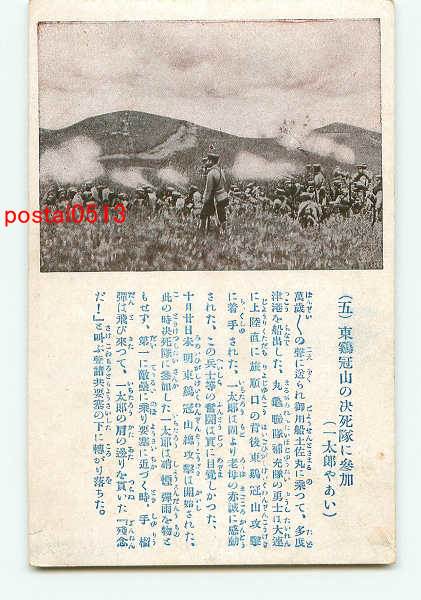 postal0513
(五) 東鷄冠山の决死隊に參加
(一太郎やあい)
萬歳〱の聲に送られ御用船土佐丸に乘つて、多度
津港を船出した、丸龜聯隊補充隊の勇士は大連
に上陸直に旅順口の背後東鷄冠山攻擊
に着手された、一太郎は固より老母の赤誠に感動
された、この兵士等の奮鬪は實に目覺しかつた、
十月廿日未明東鷄冠山總攻擊は開始された、
此の時决死隊に參加した一太郎は硝煙彈雨を物と
もせず、第一に敵壘に乘り要塞に近づく時、手榴
彈は飛び來つて、一太郎の肩の邊りを貫いた『殘念
だ!』と叫ぶ聲諸共要塞の下に轉がり落ちた。